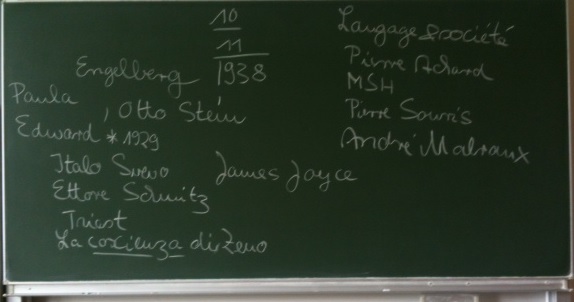 10
11
1938
Engelberg
Paula
, Otto Stein
Edward * 1929
Italo Svevo
James Joyce
Ettore Schmitz
Triest
La coscienza di Zeno
Langage & société
Pierre Achard
MSH
Pierre Souris
André Malraux